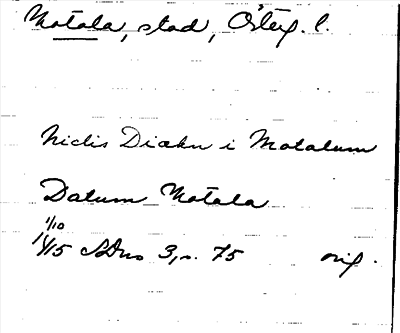 Motala, stad, Österg. l.
Niclis Diækn i Motalum
Datum Motala
1/10
1415 SDns 3, s. 75 orig.